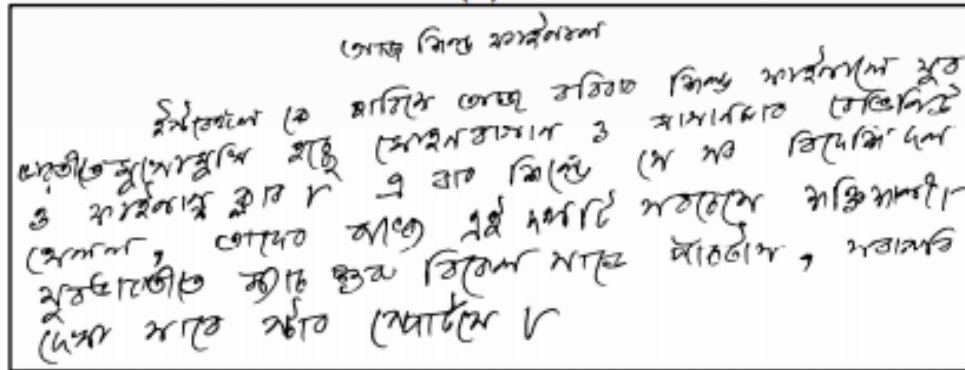 আজ শিল্ড ফাইনাল
ইস্টবেঙ্গল কে হারিয়ে আজ রবিবার শিল্ড ফাইনালে যুব
ভারতীতে মুখোমুখি হচ্ছে মোহনবাগান ও
ও ফাইনান্স ক্লাব । এ বার শিল্ডে যে সব বিদেশি দল
খেলল , তাদের মধ্যে এই দলটি সবচেয়ে শক্তিশালী।
যুবভারতীতে ম্যাচ শুরু বিকেল সাড়ে পাঁচটায় , সরাসরি
দেখা যাবে স্টার স্পোর্টসে ।